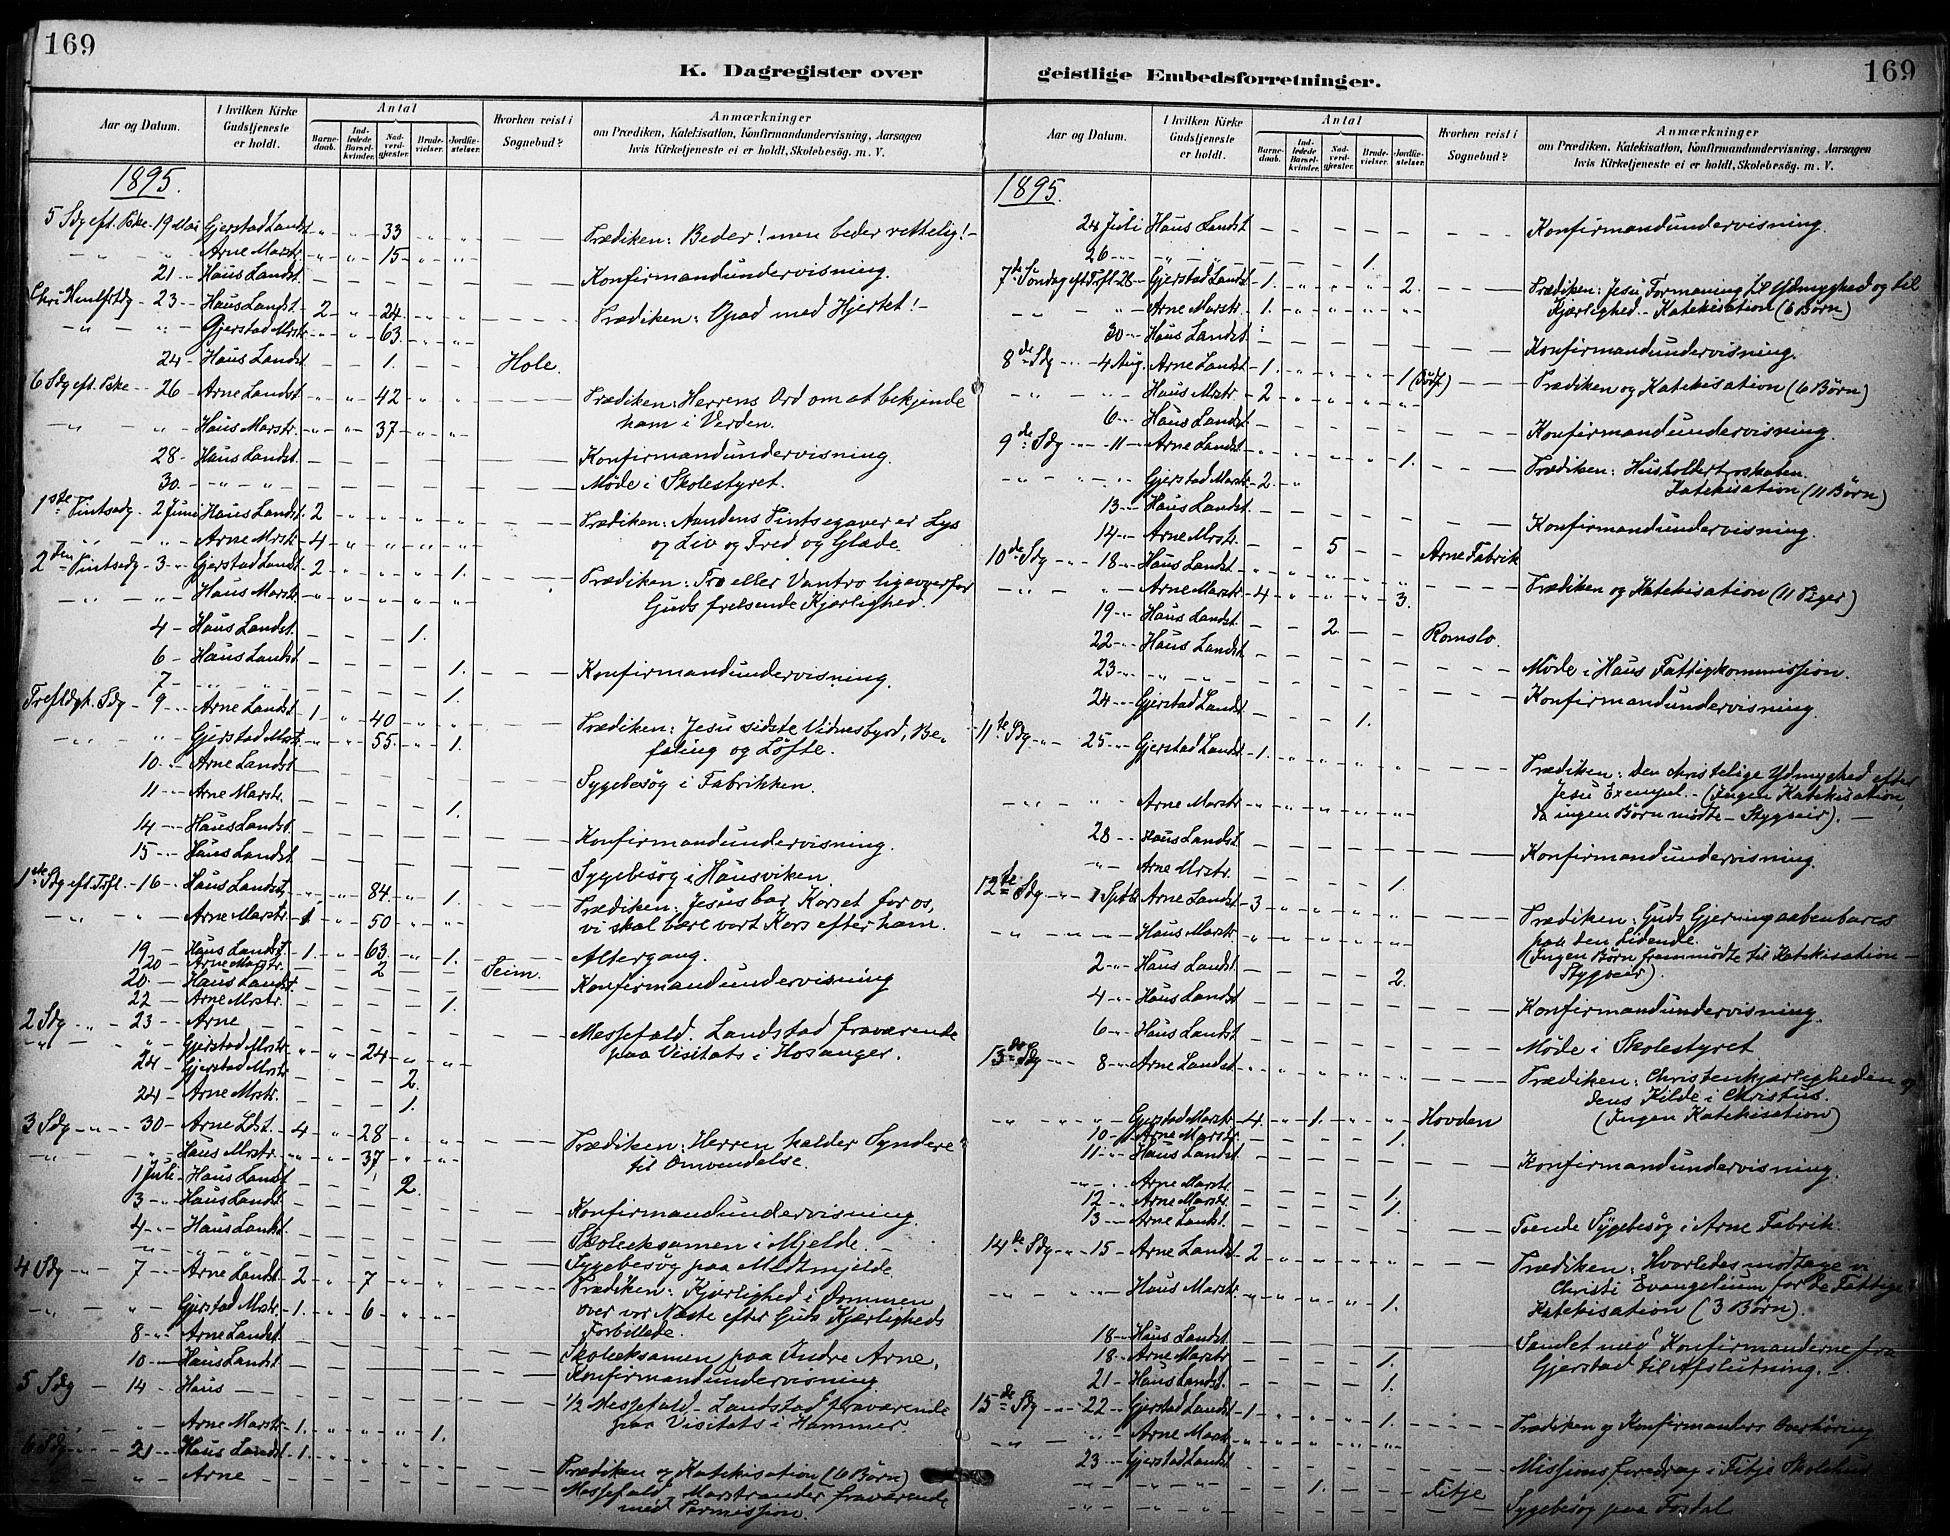 169
K. Dagregister over
Aar og Datum.
I hvilken Kirke Gudstjeneste er holdt.
Antal
Barnedaab.
Indledede Barselkvinder.
Nadverdgjester.
Brudevielser.
Jordfæstelser.
Hvorhen reist i Sognebud?
Anmærkninger
om Prædiken, Katekisation, Konfirmandundervisning, Aarsagen
hvis Kirketjeneste ei er holdt, Skolebesøg. m. V.
1895.
5 Sdg eft. Paske - 19 Mai Gjerstad Landst. " " 33 " " — Prædiken: Beder! men beder rettelig! -
- " - " Arne Marstr. " " 15 " "
21 - Haus Landst. — Konfirmandundervisning.
Chri Himlfrtdg - 23 - Haus Landst. 2 " 24 " " — Prædiken: Opad med Hjertet! -
- " - " - Gjerstad Mrstr. " " 63 " "
24 - Haus Landst. — 1. — Hole.
6 Sdg eft. Paske - 26 - Arne Landst. " " 42 " " — Prædiken: Herrens Ord om at bekjende
ham i Verden.
- " - " Haus Marstr. " " 37 " "
28 - Haus Landst. — Konfirmandundervisning.
30 - " - " — Møde i Skolestyret.
1ste Pintsedg - 2 Juni Haus Landst. 2 " " " " — Prædiken: Aandens Pintsegaver er Lys
og Liv og Fred og Glæde.
- " - " Arne Mrstr. 4 " " " "
2den Pintsedg - 3 " Gjerstad Landst. 2 " " " 1. — Prædiken: Tro eller Vantro ligeoverfor
Guds frelsende Kjærlighed.
- " - " Haus Marstr. " " " " "
4 - Haus Landst. — 1.
6 - Haus Landst. — 1. — Konfirmandundervisning.
7 - " - " — 1.
Trefldgh. Sdg - 9 - Arne Landst. 1 " 40 " " — Prædiken: Jesu sidste Vidnesbyrd, Be-
faling og Løfte.
- " - " Gjerstad Mrstr. " " 55 " 1.
10 - Arne Landst. — Sygebesøg i Fabrikken.
11 - Arne Marstr. — 1.
14 - Haus Landst. — Konfirmandundervisning.
15 - Haus Landst. — Sygebesøg i Hausviken.
1ste Sdg eft. Trfl. - 16 - Haus Landst. " " 84 " 1. — Prædiken: Jesus bar Korset for os,
vi skal bære vort Kors efter ham.
- " - " Arne Marstr. 1 " 50 " "
19 - Haus Landst. 1. " 63 " 1. — Altergang.
20 - Arne Marstr. — 2 — Seim.
20 - Haus Landst. — Konfirmandundervisning
22 - Arne Mrstr. — 1.
2 Sdg " 23 - Arne — Messefald. Landstad fraværende
paa Visitats i Hosanger.
- " - " Gjerstad Mrstr. " " 24 " "
24 - Gjerstad Mrstr. — 2.
24 - Arne Mrstr. — 1.
3 Sdg " 30 - Arne Ldst. 4 " 28 " " — Prædiken: Herren kalder Syndere
til Omvendelse.
- " - " Haus Mrstr. " " 37 " "
1 Juli - Haus Landst. — 2.
3 - Haus Landst. — Konfirmandundervisning.
4 - Haus Landst. — Skoleeksamen i Mjelde. -
- " - " — Sygebesøg paa Midtmjelde.
4 Sdg " 7 - Arne Landst. 2 " 7 " " — Prædiken: Kjærlighed i Dommen
over vor Næste efter Guds Kjærligheds
Forbillede.
- " - " Gjerstad Mrstr. 1. " 6 " "
8 - Arne Landst. — Skoleeksamen paa Indre Arne.
10 - Haus Landst. — Konfirmandundervisning.
5 Sdg - 14 - Haus — 1/2 Messefald - Landstad fraværende
paa Visitats i Hammer.
" Arne Marstr. 1. " " 1. "
6 Sdg - 21 - Haus Landst. 1. — Prædiken og Katekisation (6 Børn)
- " - " Arne — Messefald. Marstrander fraværende
med Permission.
169
geistlige Embedsforretninger.
Aar og Datum.
I hvilken Kirke Gudstjeneste er holdt.
Antal
Barnedaab.
Indledede Barselkvinder.
Nadverdgjester.
Brudevielser.
Jordfæstelser.
Hvorhen reist i Sognebud?
Anmærkninger
om Prædiken, Katekisation, Konfirmandundervisning, Aarsagen
hvis Kirketjeneste ei er holdt, Skolebesøg. m. V.
1895.
24 Juli Haus Landst. — Konfirmandundervisning.
26 - " - " — 1.
7de Søndag eft Trfl - 28 - Gjerstad Landst. 1. " " " 2. — Prædiken: Jesu Formaning til Ydmyghed og til
Kjærlighed. - Katekisation (6 Børn)
- " - " Arne Marstr. 1. " " " "
30 - Haus Landst. — Konfirmandundervisning.
8de Sdg - 4 Aug. Arne Landst. 1. " " " 1 — Prædiken og Katekisation (6 Børn)
- " - " Haus Mrstr. 2 " " " "
6 - Haus Landst. — Konfirmandundervisning.
9de Sdg " 11 - Arne Landst. " " " " 1. — Prædiken: Husholdertroskaben.
Katekisation (11 Børn)
- " - " Gjerstad Marstr. 2. "
13 - Haus Landst. — Konfirmandundervisning.
14 - Arne Mrstr. — 5 — Arne Fabrik
10de Sdg " 18 - Haus Landst. " " " " " — Prædiken og Katekisation (11 Piger)
- " - " Arne Marstr. 4 " " " 3.
19 - Haus Landst. — 2 — Romslo.
22 - Haus Landst. — Møde i Haus Fattigkommission.
23 - " " " — Konfirmandundervisning.
24 - Gjerstad Landst. — 1.
11te Sdg " 25 - Gjerstad Landst. 1. " " " " — Prædiken: Den christelige Ydmyghed efter
Jesu Exempel. - (Ingen Katekisation,
da ingen Børn mødte - Stygveir). -
- " - " Arne Marstr. " " " " "
28 - Haus Landst. — Konfirmandundervisning.
" - Arne Mrstr. — 1.
12te Sdg " 1 Sptbr. Arne Landst. 3 " " " " — Prædiken: Guds Gjerning aabenbares
paa den Lidende.
(Ingen Børn fremmødte til Katekisation -
Stygveir).
- " - " Haus Marstr. " " " " "
2 - Haus Landst. — 2.
4 - Haus Landst. — Konfirmandundervisning.
6 - Haus Landst. — Møde i Skolestyret
13de Sdg 8 - Arne Landst. " " " " " — Prædiken: Christenkjærligheden og
dens Kilde i Christus.
(Ingen Katekisation)
" " " Gjerstad Marstr. 4 " 1. " " Hovden
10 - Arne Marstr. — 1.
11 - Haus Landst. — Konfirmandundervisning.
" - Arne Marstr. — 1.
12 - Arne Marstr. — 1.
13 - Arne Landst. — Toende Sygebesøg i Arne Fabrik.
14de Sdg " 15 - Arne Landst. 2 " " " " — Prædiken: Hvorledes modtage vi
Christi Evangelium for De Fattige?
Katekisation (3 Børn).
" " " Haus Marstr. " " " " 1.
18 - Haus Landst. — Samlet med Konfirmanderne fra
Gjerstad til Afslutning. -
18 - Arne Marstr. — 1.
21 - Haus Landst. — 1.
15de Sdg " 22 - Gjerstad Landst. 1 " " " 1. — Prædiken og Konfirmanders Overhøring
- " - " Arne Marstr. " " " " "
23 - Gjerstad Landst. — Missionsforedrag i Titje Skolehus
- " - " — 1. — Titje Sygebesøg paa Fosdal